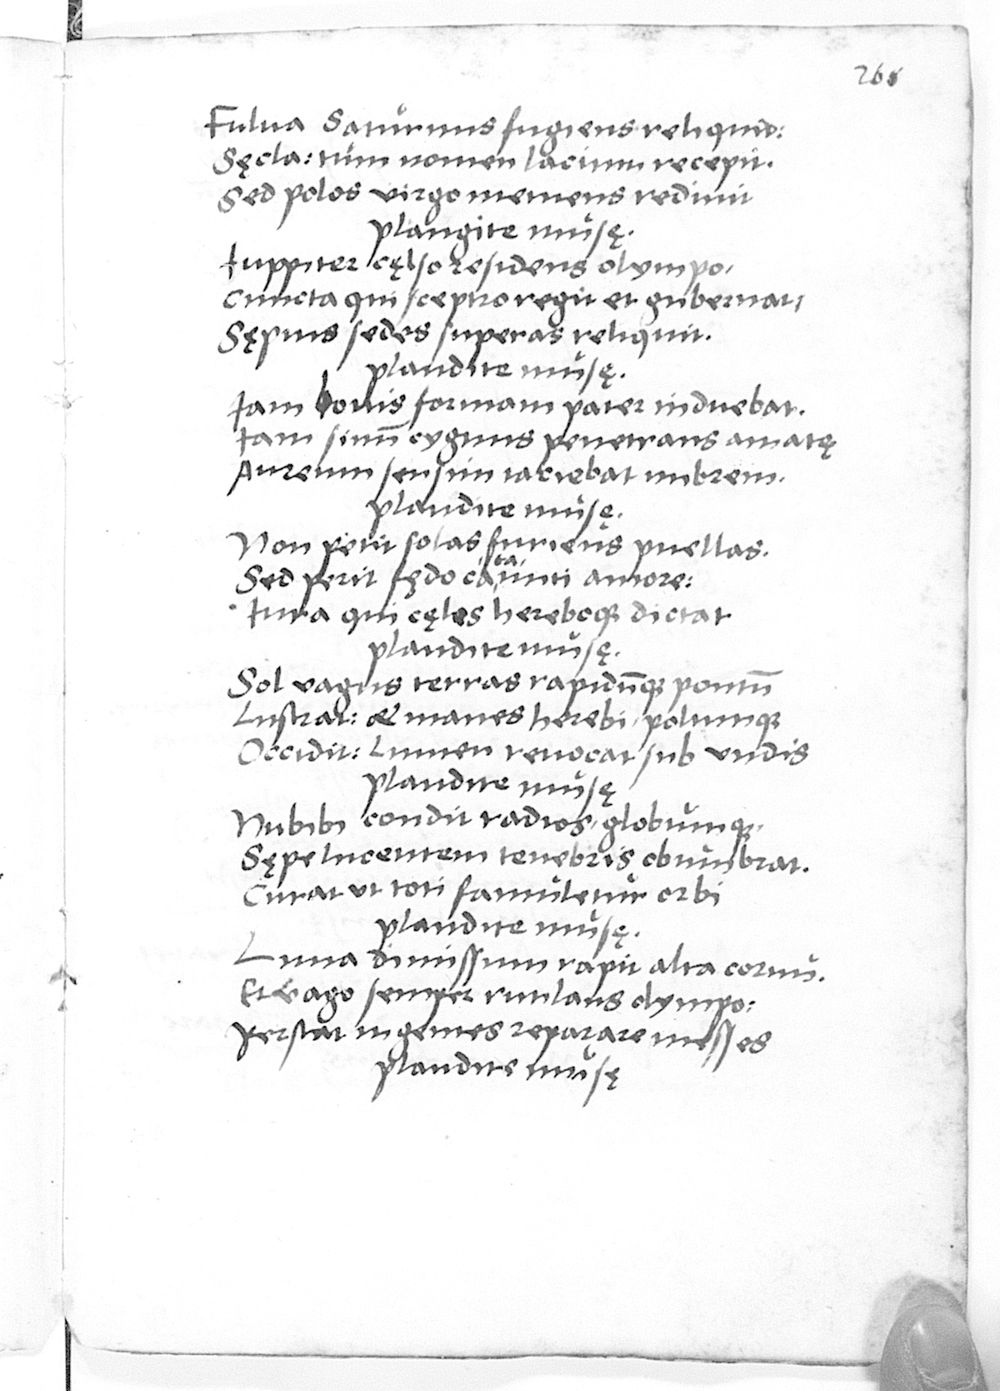 268
Fulua Saturnus fugiens reliquid:
Sęcla: tum nomen lacium recepit.
Sed polos virgo metuens rediuit
plangite musę.
Iuppiter cęlso residens olympo,
Cuncta qui sceptro regit et gubernat,
Sępius sedes superas reliquit.
plaudite musę.
Iam bouis formam pater induebat.
Iam sinū cygnus penetrans amatę
Aureum sensim iaciebat imbrem.
plaudite musę.
Non petit solas furiens puellas.
Sed perit fędo cataunti amore:
Iura qui cęles hereboqꝫ dictat
plaudite musę.
Sol vagus terras rapidūqꝫ pontū
Lustrat: & manes herebi, polumqꝫ
Occidit: Lumen reuocat sub vndis
plaudite musę
Nubibi condit radios, globumqꝫ,
Sępe lucentem tenebris obumbrat.
Curat vt toti famuletur orbi
plaudite musę.
Luna dimissum rapit alta cornu.
Et vago semper rutilans olympo:
Perstat ingentes reparare messes
plaudite musę